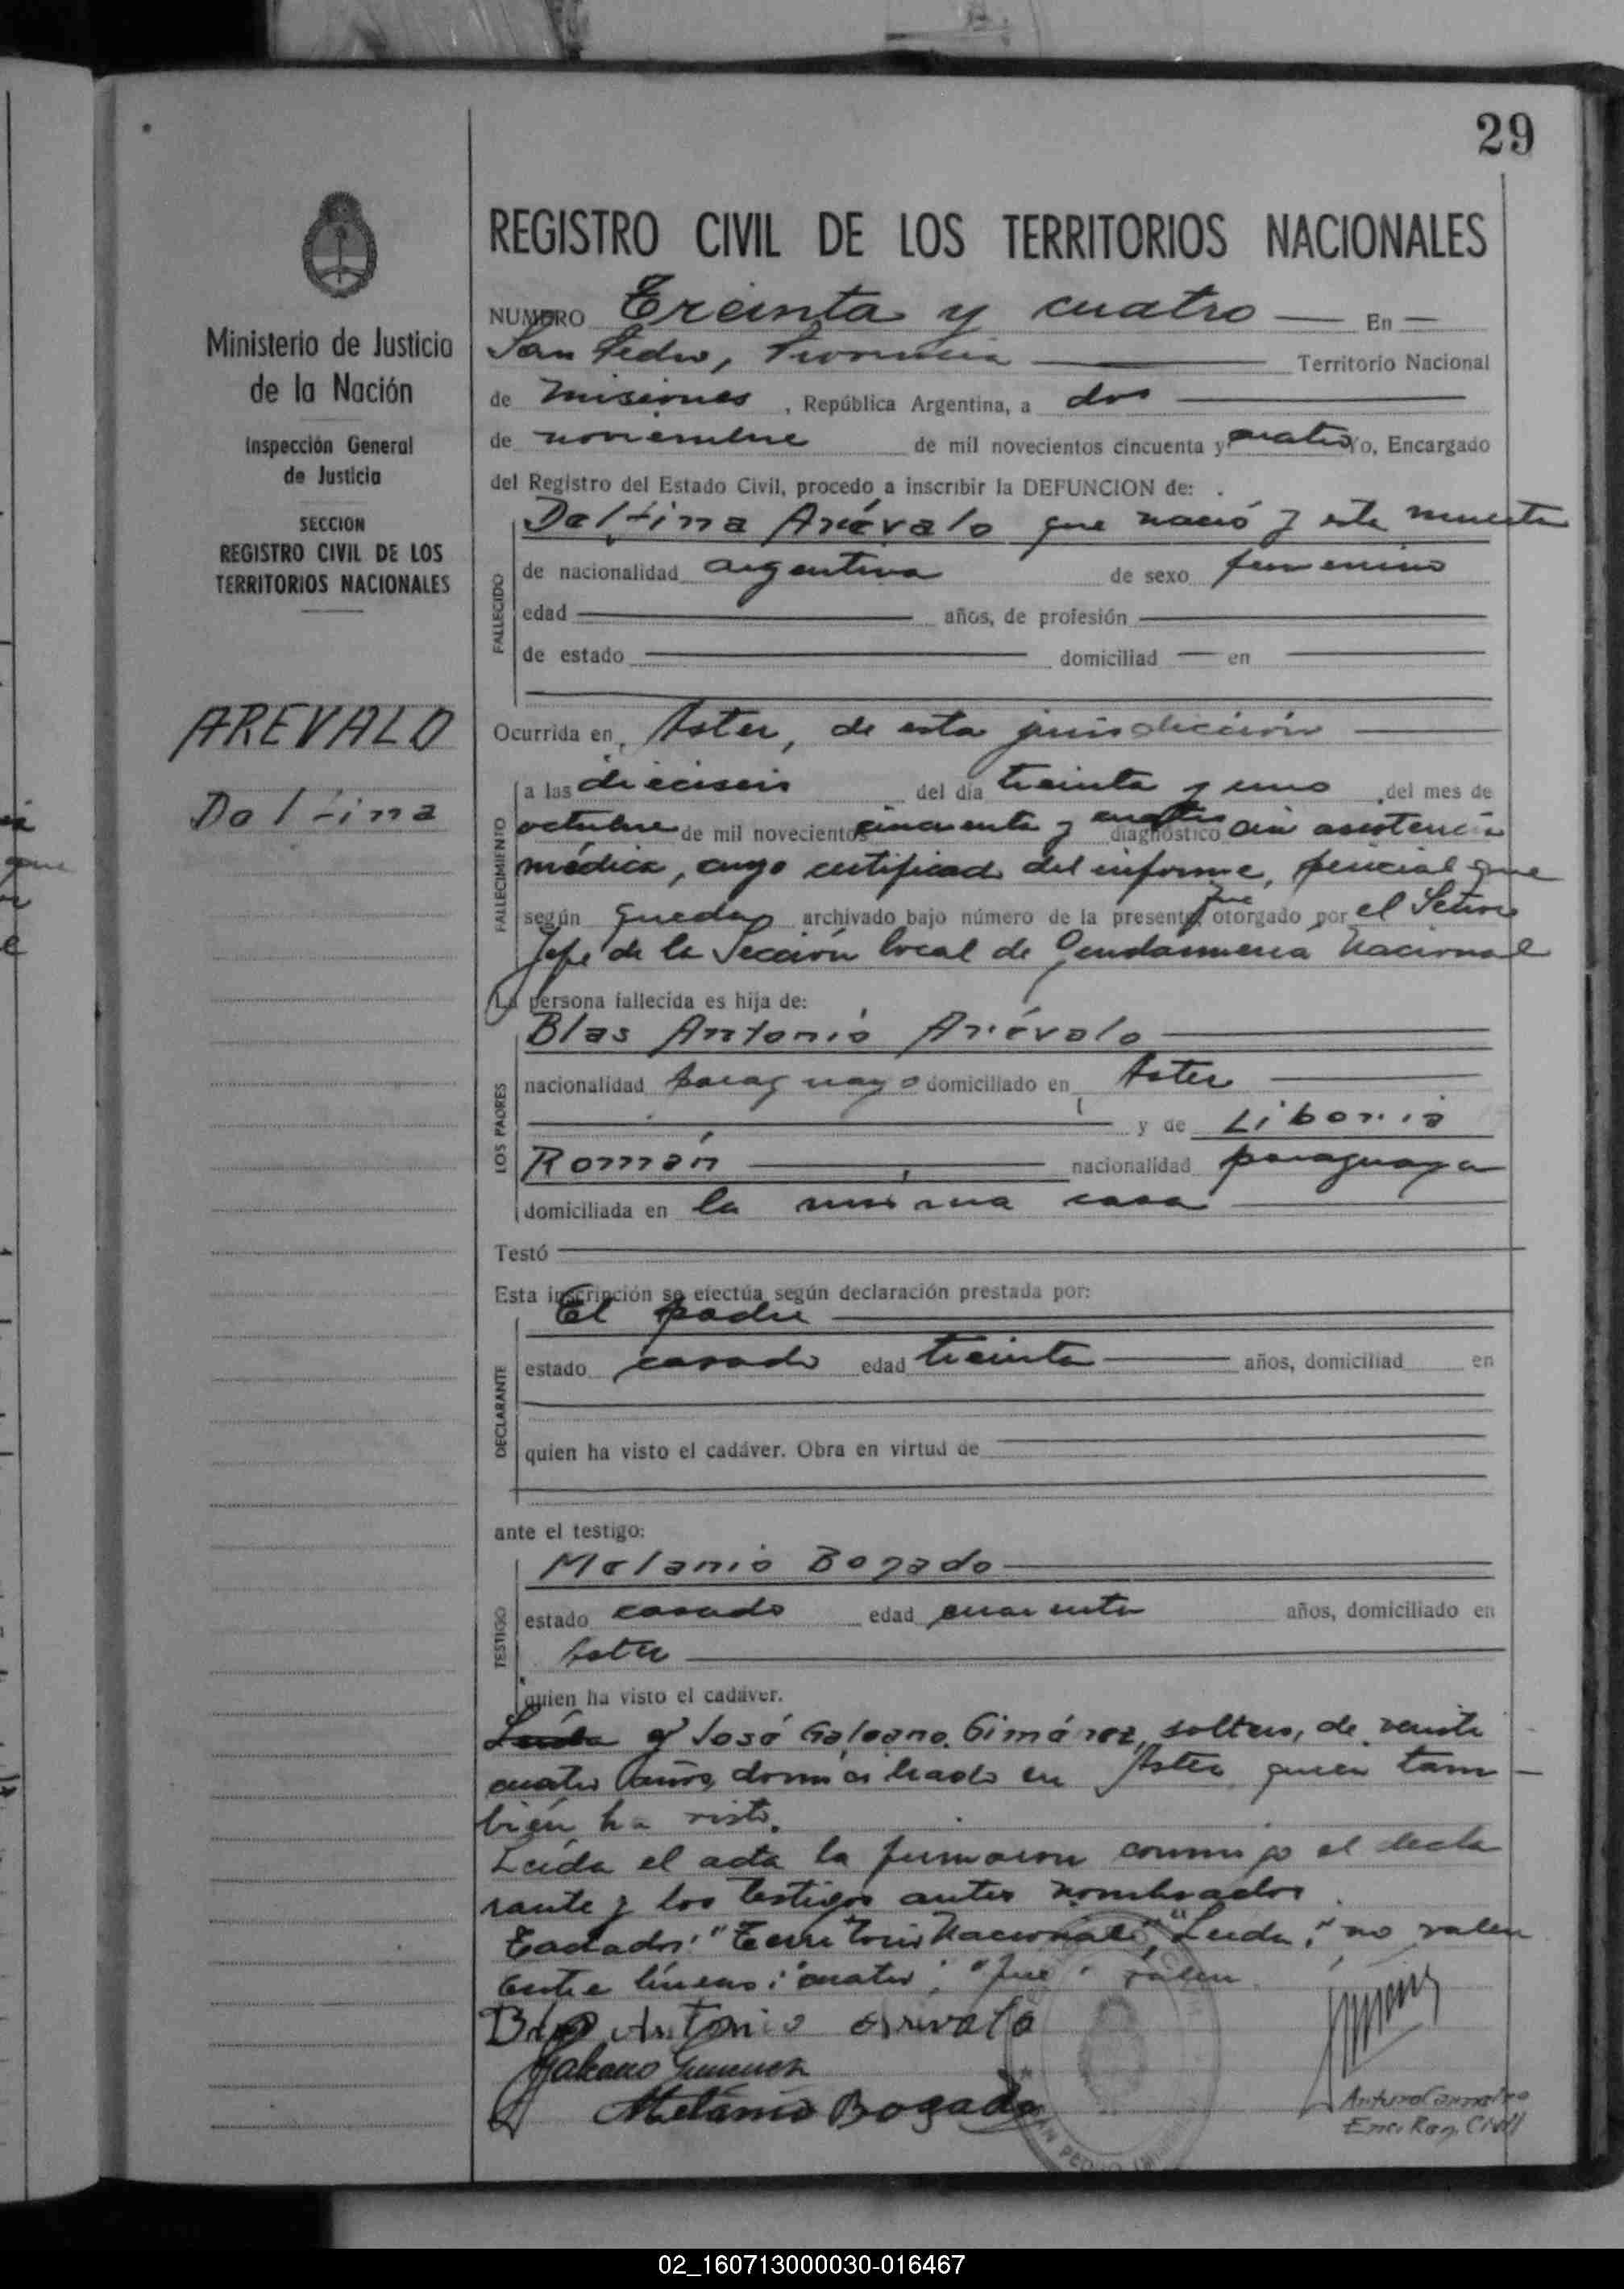 29
REGISTRO CIVIL DE LOS TERRITORIOS NACIONALES
Ministerio de Justicia
de la Nación
Inspección General
de Justicia
SECCION
REGISTRO CIVIL DE LOS
TERRITORIOS NACIONALES
AREVALO
Delfina
NUMERO Treinta y cuatro En
San Pedro, Provincia Territorio Nacional
de Misiones, República Argentina, a dos
de noviembre de mil novecientos cincuenta y cuatro Yo, Encargado
del Registro del Estado Civil, procedo a inscribir la DEFUNCION de:
FALLECIDO
Delfina Arévalo que nació y esta muerta
de nacionalidad argentina de sexo femenino
edad años, de profesión
de estado domiciliad en
Ocurrida en Aster, de esta jurisdicción
FALLECIMIENTO
a las dieciseis del día treinta y uno del mes de
octubre de mil novecientos cincuenta y cuatro diagnóstico sin asistencia
médica, cuyo certificado del informe, que
según queda archivado bajo número de la presente fue otorgado por el Señor
Jefe de la Sección local de Gendarmería Nacional
La persona fallecida es hija de:
LOS PADRES
Blas Antonio Arévalo
nacionalidad paraguayo domiciliado en Aster
y de Liboria
Román nacionalidad paraguaya
domiciliada en la misma casa
Testó
Esta inscripción se efectúa según declaración prestada por:
DECLARANTE
El padre
estado casado edad treinta años, domiciliad en
quien ha visto el cadáver. Obra en virtud de
ante el testigo:
TESTIGO
Melanio Bogado
estado casado edad cuarenta años, domiciliado en
Aster
quien ha visto el cadáver.
Leída y José Galeano Giménez, soltero, de veinte
cuatro años, domiciliado en Aster quien tam
bién ha visto.
Leída el acta la firmaron conmigo el decla
rante y los testigos antes nombrados
Tachados: "Territorio Nacional", "Leída", no valen
Entre líneas: "cuatro", "fue" valen
Blas Antonio Arevalo
Galeano Gimenez
Melanio Bogado
Enc. Reg. Civil
SAN PEDRO
02_160713000030-016467